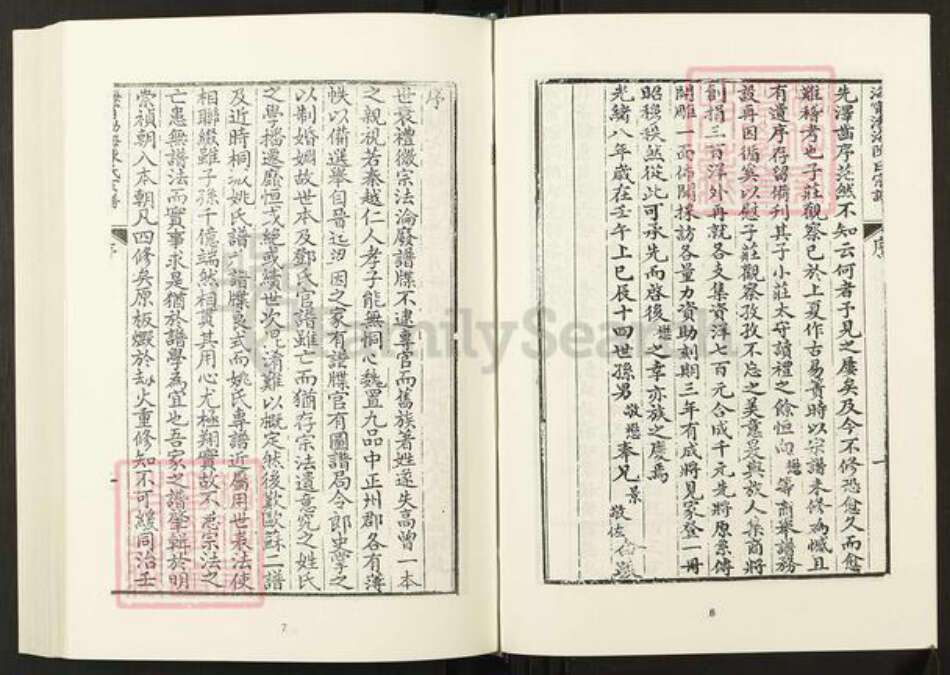 先澤齒序茫然不知云何者予見之屢矣及今不修恐愈久而愈
難稽考也子莊觀察已於上夏作古易簀時以宗譜未修為憾且
有遺序存留撰刊其子小莊太守讀禮之餘恒向懋等商舉譜務
設再因循奚以慰子莊觀察孜孜不忘之美意爰與族人集商將
創捐三百洋外再就各支集資洋七百元合成千元先將原系傳
開雕一面佈開採訪各量力資助刻期三年有成將見家登一冊
昭穆秩然從此可承先而啓後懋之幸亦族之慶焉
光緒八年歲在壬午上巳辰十四世孫男敬懋奉兄景敬佐
6
序
世衰禮微宗法淪廢譜牒不逮專官而舊族著姓遂失高曾一本
之親視若秦越仁人孝子能無恫心魏置九品中正州郡各有簿
帙以備選舉自晉迄
因之家有譜牒官有圖譜局令郎史掌之
以制婚姻故世本及鄧氏官譜雖亡而猶存宗法遺意究之姓氏
之學播遷靡恒或絕或續世次
淆難以概定然後歎歐蘇二譜
及近時桐城姚氏譜
譜牒良式而姚氏專譜近屬用世表法使
相聯綴雖子孫千億端然相貫其用心尤極翔實故不悉宗法之
亡患無譜法而實事求是猶於譜學為宜也吾家之譜肇輯於明
崇禎朝入本朝凡四修矣原板燬於劫火重修知不可緩同治壬
序
一
7
FamilySearch